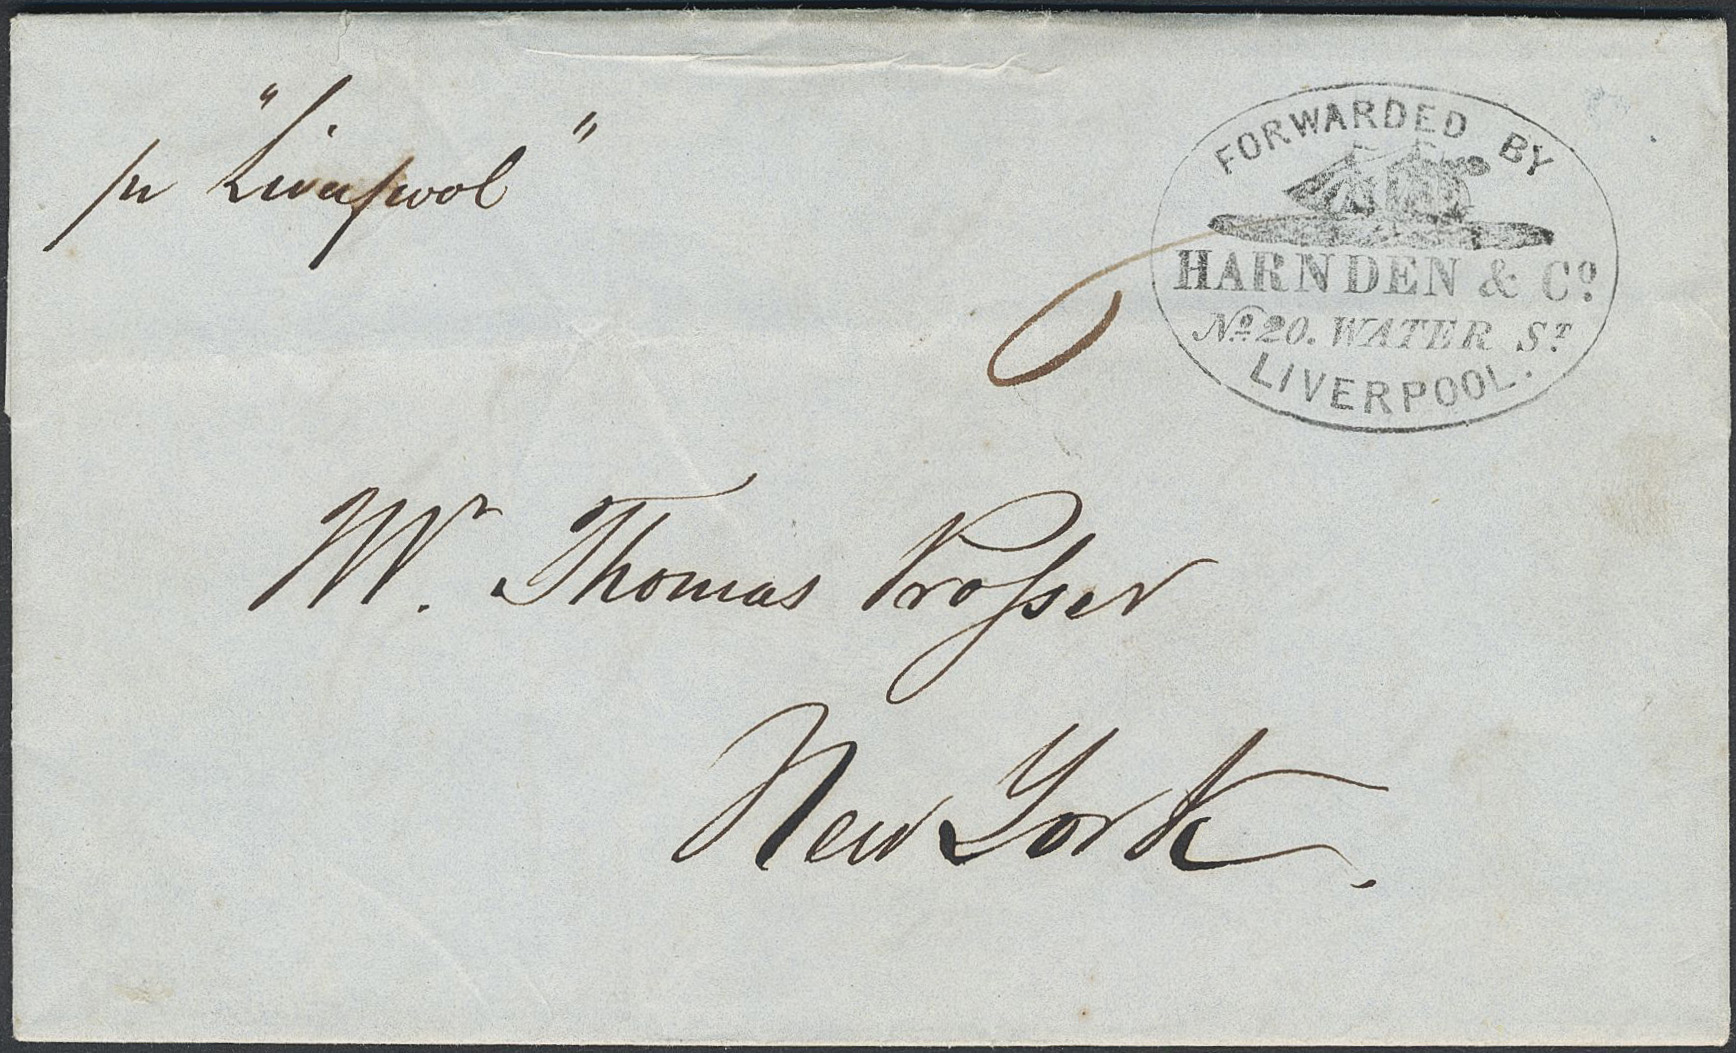 pr "Liverpool"
FORWARDED BY
HARNDEN & Co.
No. 20. WATER ST.
LIVERPOOL.
6
Mr. Thomas Prosser
New York.